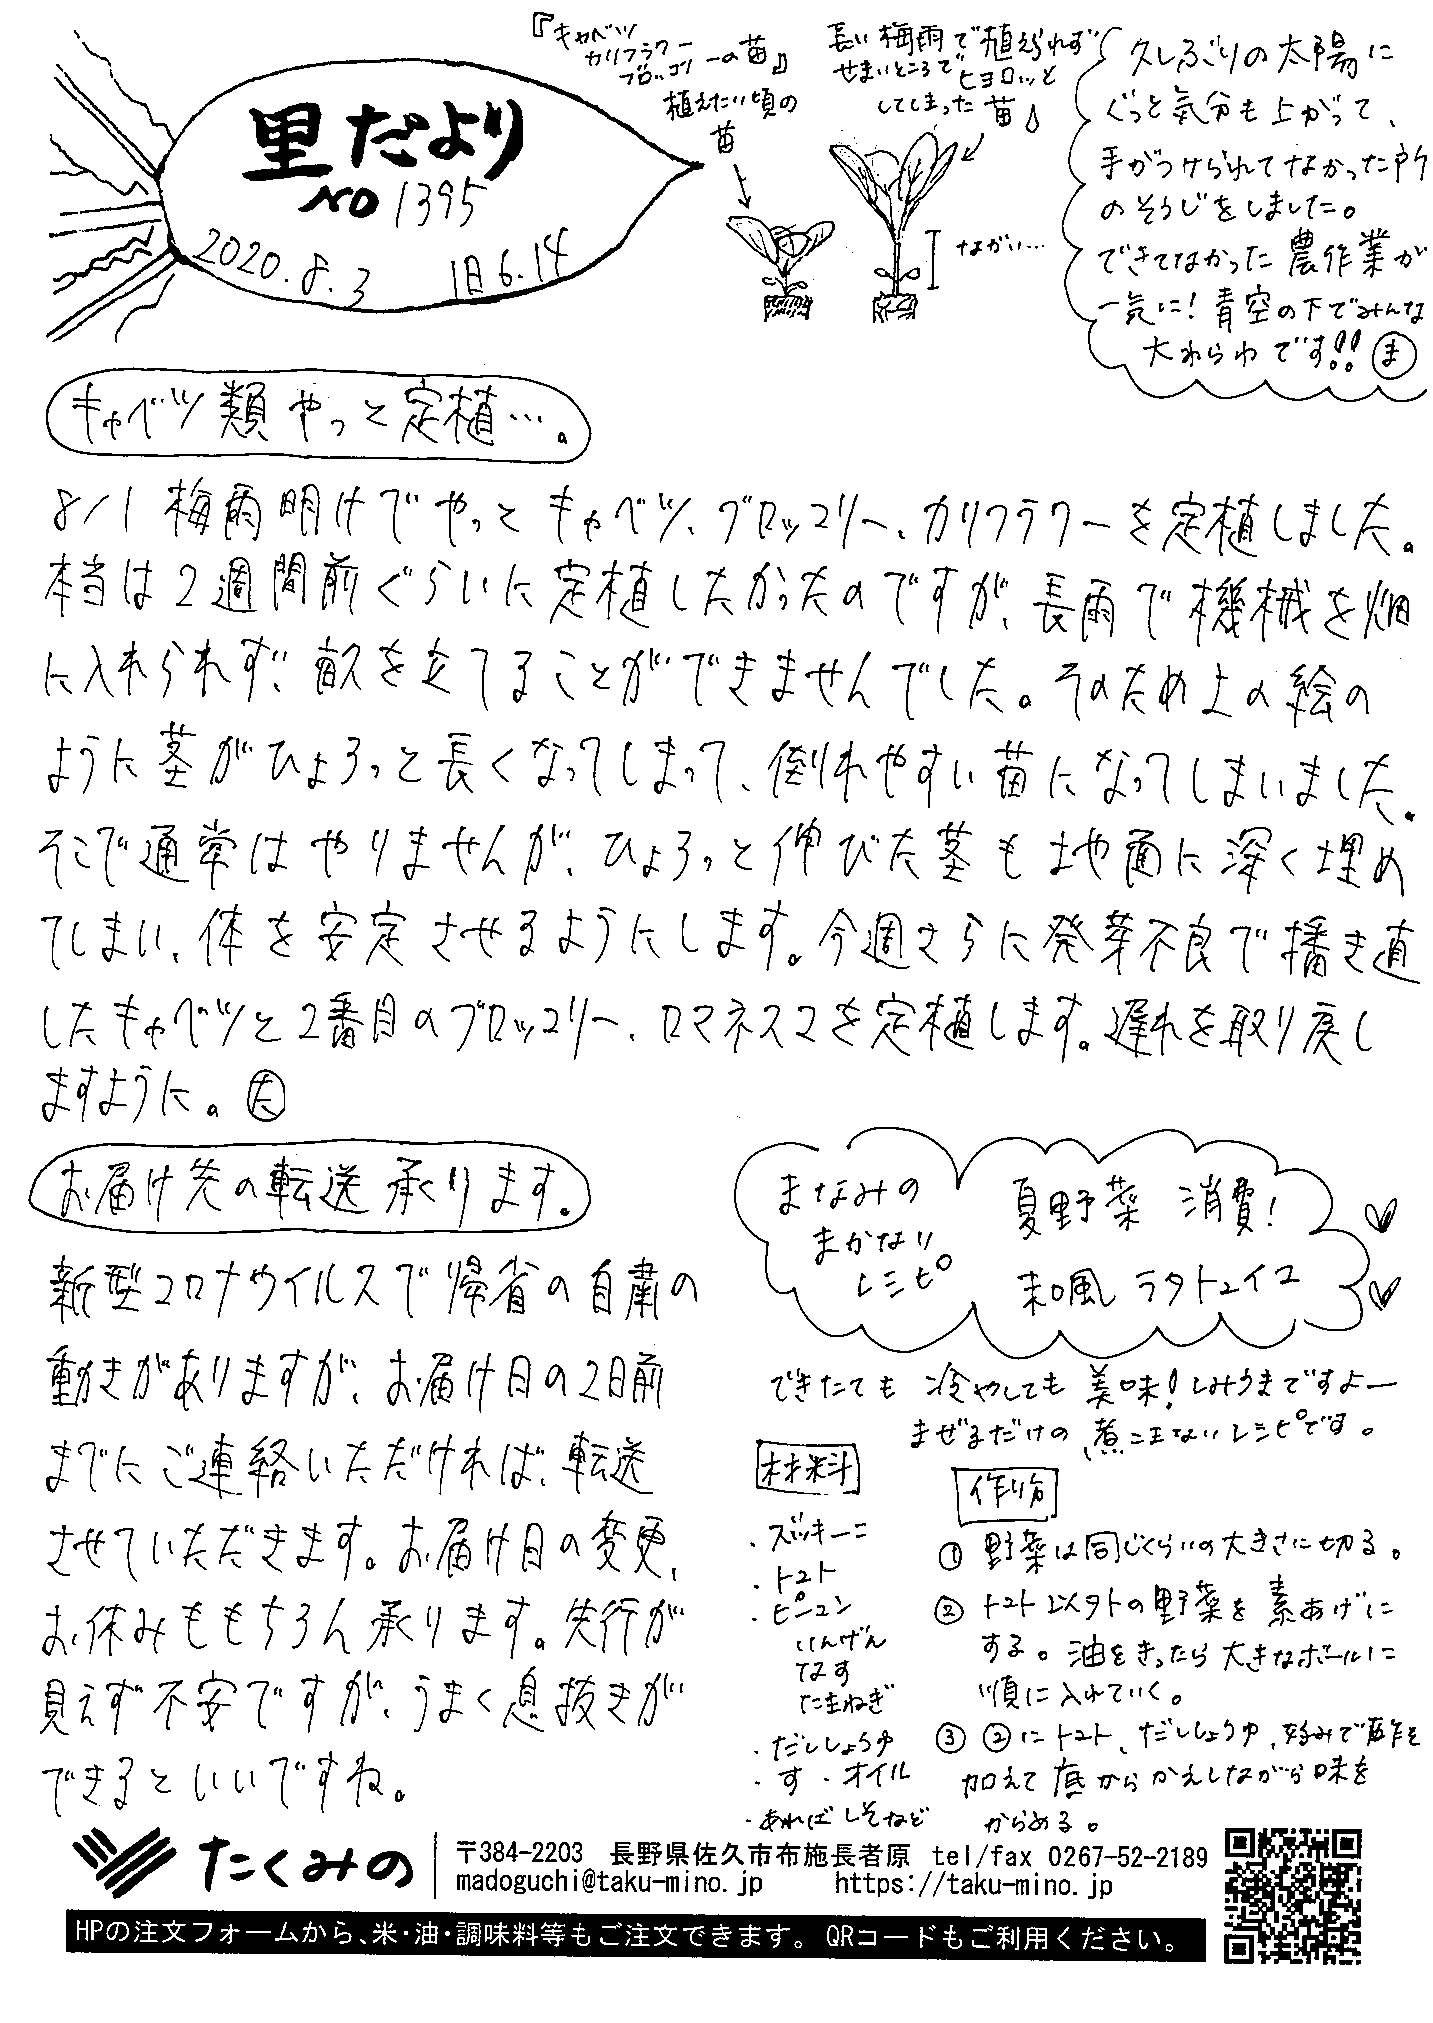 里だより
NO 1395
2020.8.3 旧6.14
『キャベツ
カリフラワー
ブロッコリーの苗』
植えたい頃の
苗
長い梅雨で植えられず
せまいところで
ヒョロッと
してしまった苗
ながい…
久しぶりの太陽に
ぐっと気分も上がって、
手がつけられてなかった所
のそうじをしました。
できてなかった農作業が
一気に!青空の下でみんな
大わらわです!! ま
キャベツ類やっと定植…。
8/1 梅雨明けでやっとキャベツ、ブロッコリー、カリフラワーを定植しました。
本当は2週間前ぐらいに定植したかったのですが、長雨で機械を畑
に入れられず、畝を立てることができませんでした。そのため上の絵の
ように茎がひょろっと長くなってしまって、倒れやすい苗になってしまいました。
そこで通常はやりませんが、ひょろっと伸びた茎も地面に深く埋め
てしまい、体を安定させるようにします。今週さらに発芽不良で播き直
したキャベツと2番目のブロッコリー、ロマネスコを定植します。遅れを取り戻し
ますように。 た
お届け先の転送承ります。
新型コロナウイルスで帰省の自粛の
動きがありますが、お届け日の2日前
までにご連絡いただければ、転送
させていただきます。お届け日の変更、
お休みももちろん承ります。先行が
見えず不安ですが、うまく息抜きが
できるといいですね。
まなみの
まかなり
レシピ
夏野菜 消費!
和風 ラタトゥイユ
できたても 冷やしても 美味!しみうまですよー
まぜるだけの煮こまないレシピです。
材料
・ズッキーニ
・トマト
・ピーマン
いんげん
なす
たまねぎ
・だししょうゆ
・す ・オイル
・あればしそなど
作り方
① 野菜は同じくらいの大きさに切る。
② トマト以外の野菜を素あげに
する。油をきったら大きなボールに
順に入れていく。
③ ②にトマト、だししょうゆ、好みで酢を
加えて底からかえしながら味を
からめる。
たくみの
〒384-2203 長野県佐久市布施長者原 tel/fax 0267-52-2189
madoguchi@taku-mino.jp https://taku-mino.jp
HPの注文フォームから、米・油・調味料等もご注文できます。QRコードもご利用ください。